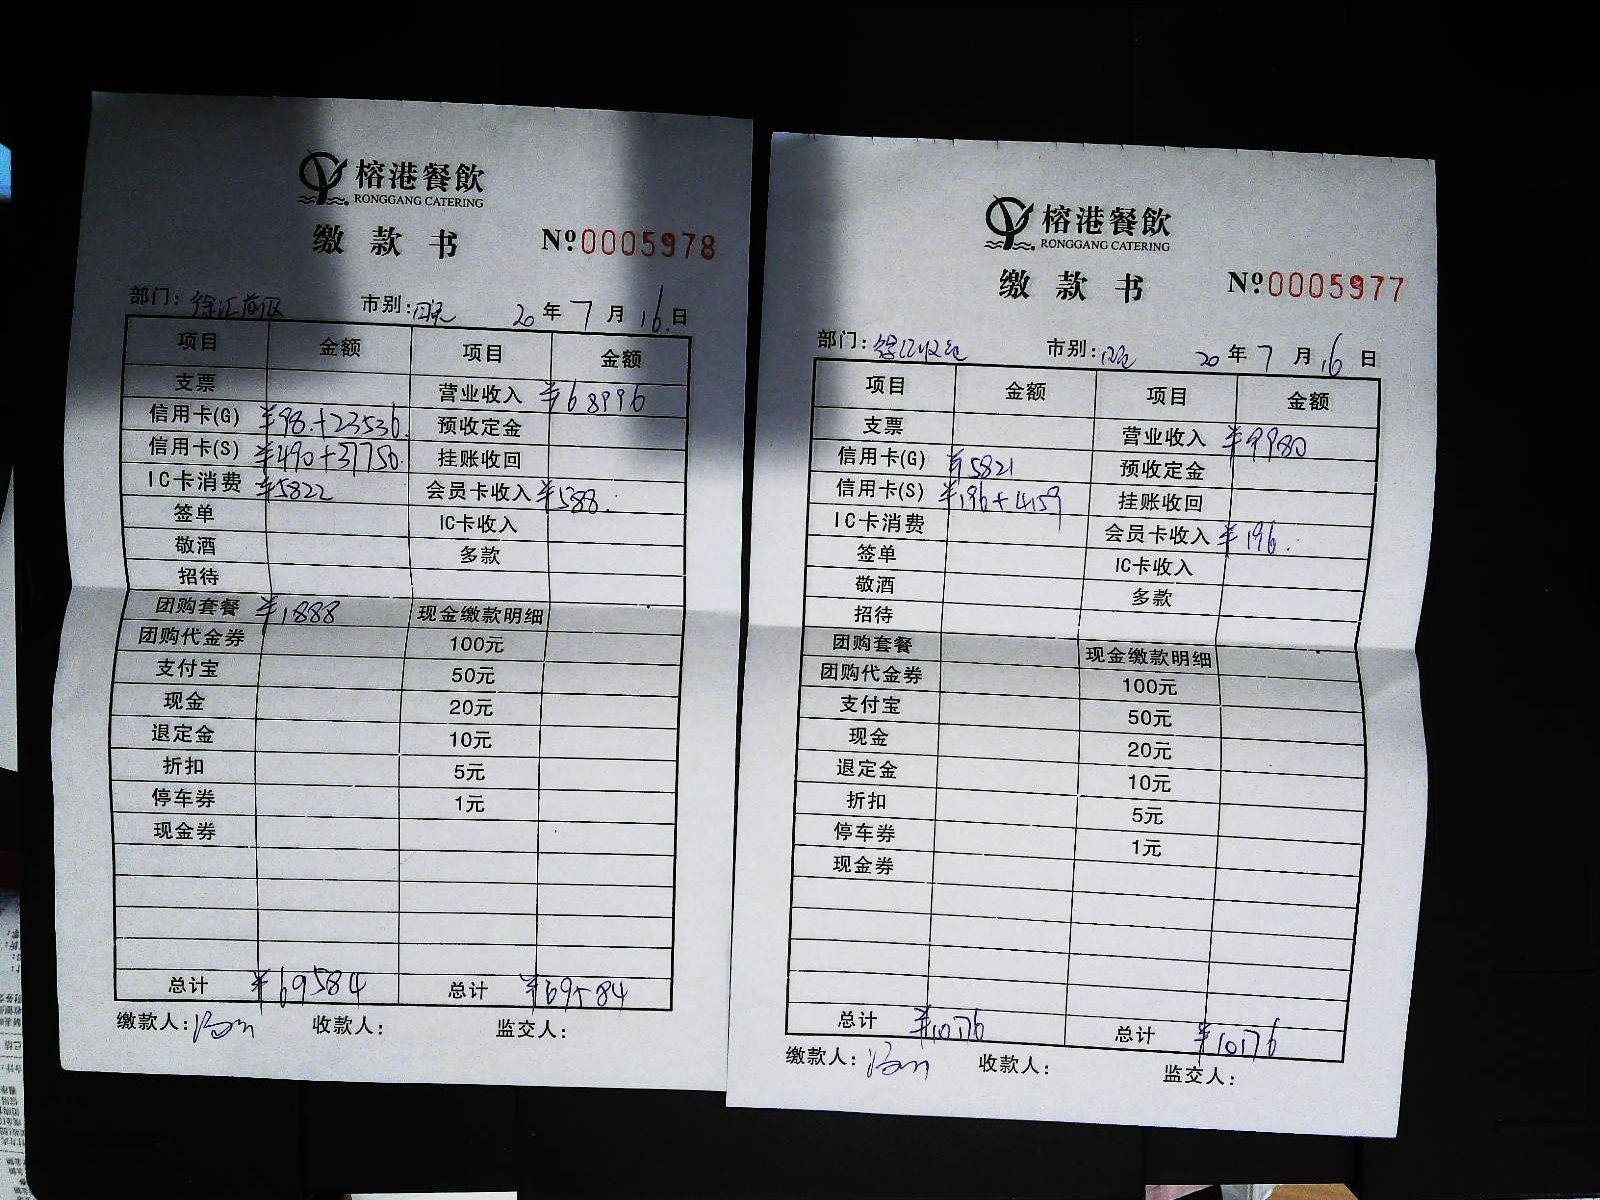 榕港餐飲
RONGGANG CATERING
缴款书 Nº0005978
部门: 徐汇 市别: 20年7月16日
项目 金额 项目 金额
支票 营业收入 ¥68996
信用卡(G) ¥98.+23536. 预收定金
信用卡(S) ¥490+37750. 挂账收回
IC卡消费 ¥5822 会员卡收入 ¥588.
签单 IC卡收入
敬酒 多款
招待
团购套餐 ¥1888 现金缴款明细
团购代金券 100元
支付宝 50元
现金 20元
退定金 10元
折扣 5元
停车券 1元
现金券
总计 ¥69584 总计 ¥69584
缴款人: 收款人: 监交人:
榕港餐飲
RONGGANG CATERING
缴款书 Nº0005977
部门: 市别: 20年7月16日
项目 金额 项目 金额
支票 营业收入 ¥9980
信用卡(G) ¥5821 预收定金
信用卡(S) ¥196+4159 挂账收回
IC卡消费 会员卡收入 ¥196.
签单 IC卡收入
敬酒 多款
招待
团购套餐 现金缴款明细
团购代金券 100元
支付宝 50元
现金 20元
退定金 10元
折扣 5元
停车券 1元
现金券
总计 ¥10176 总计 ¥10176
缴款人: 收款人: 监交人: